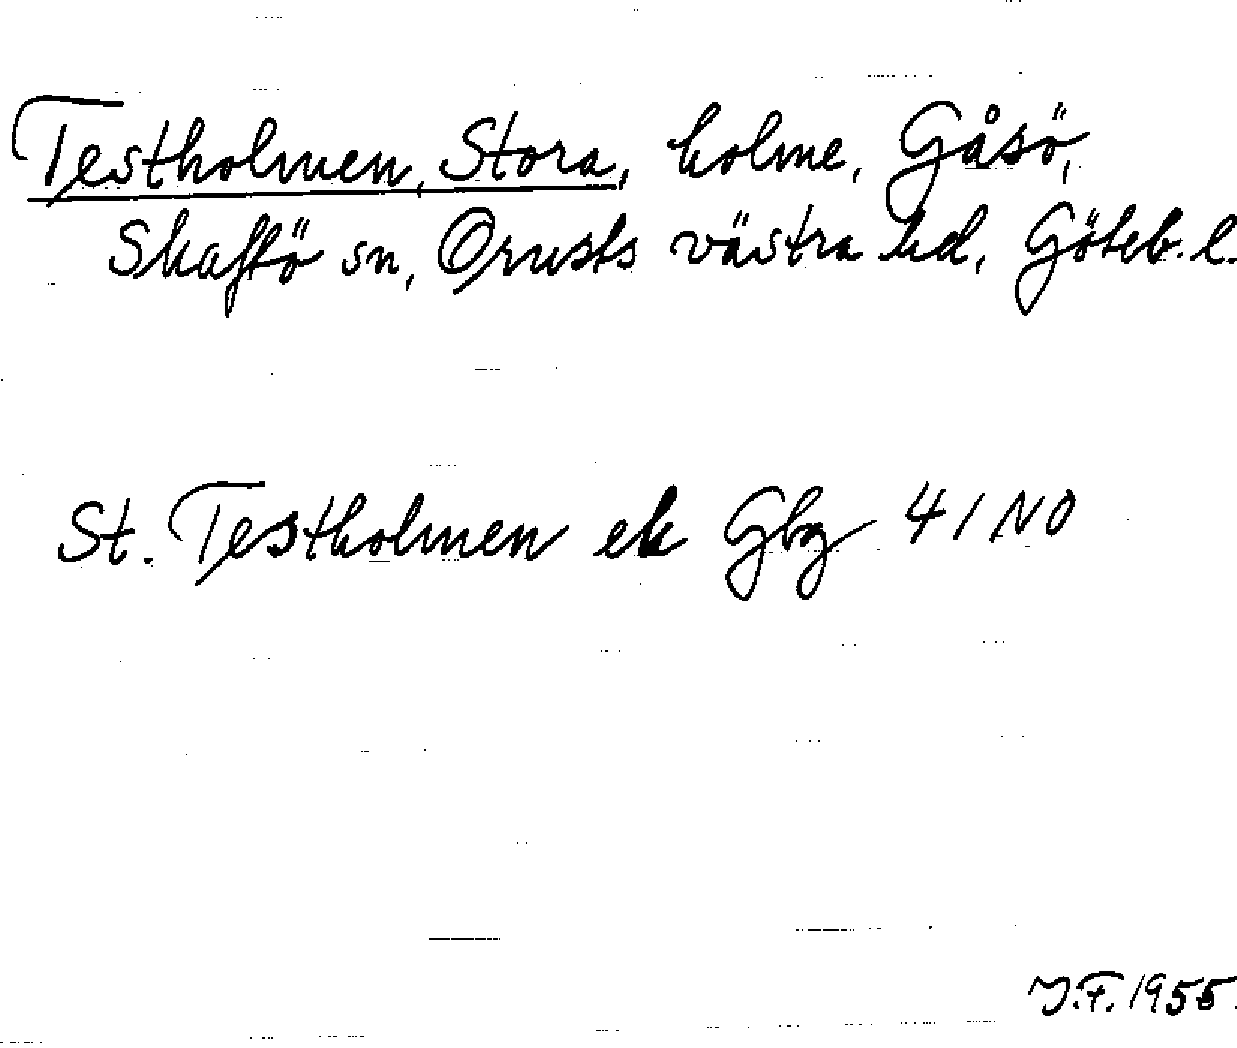 Testholmen, Stora, holme, Gåsö,
Skaftö sn, Orusts västra hd, Göteb. l.
St. Testholmen ek Gbg 41 NO
J.F. 1955.